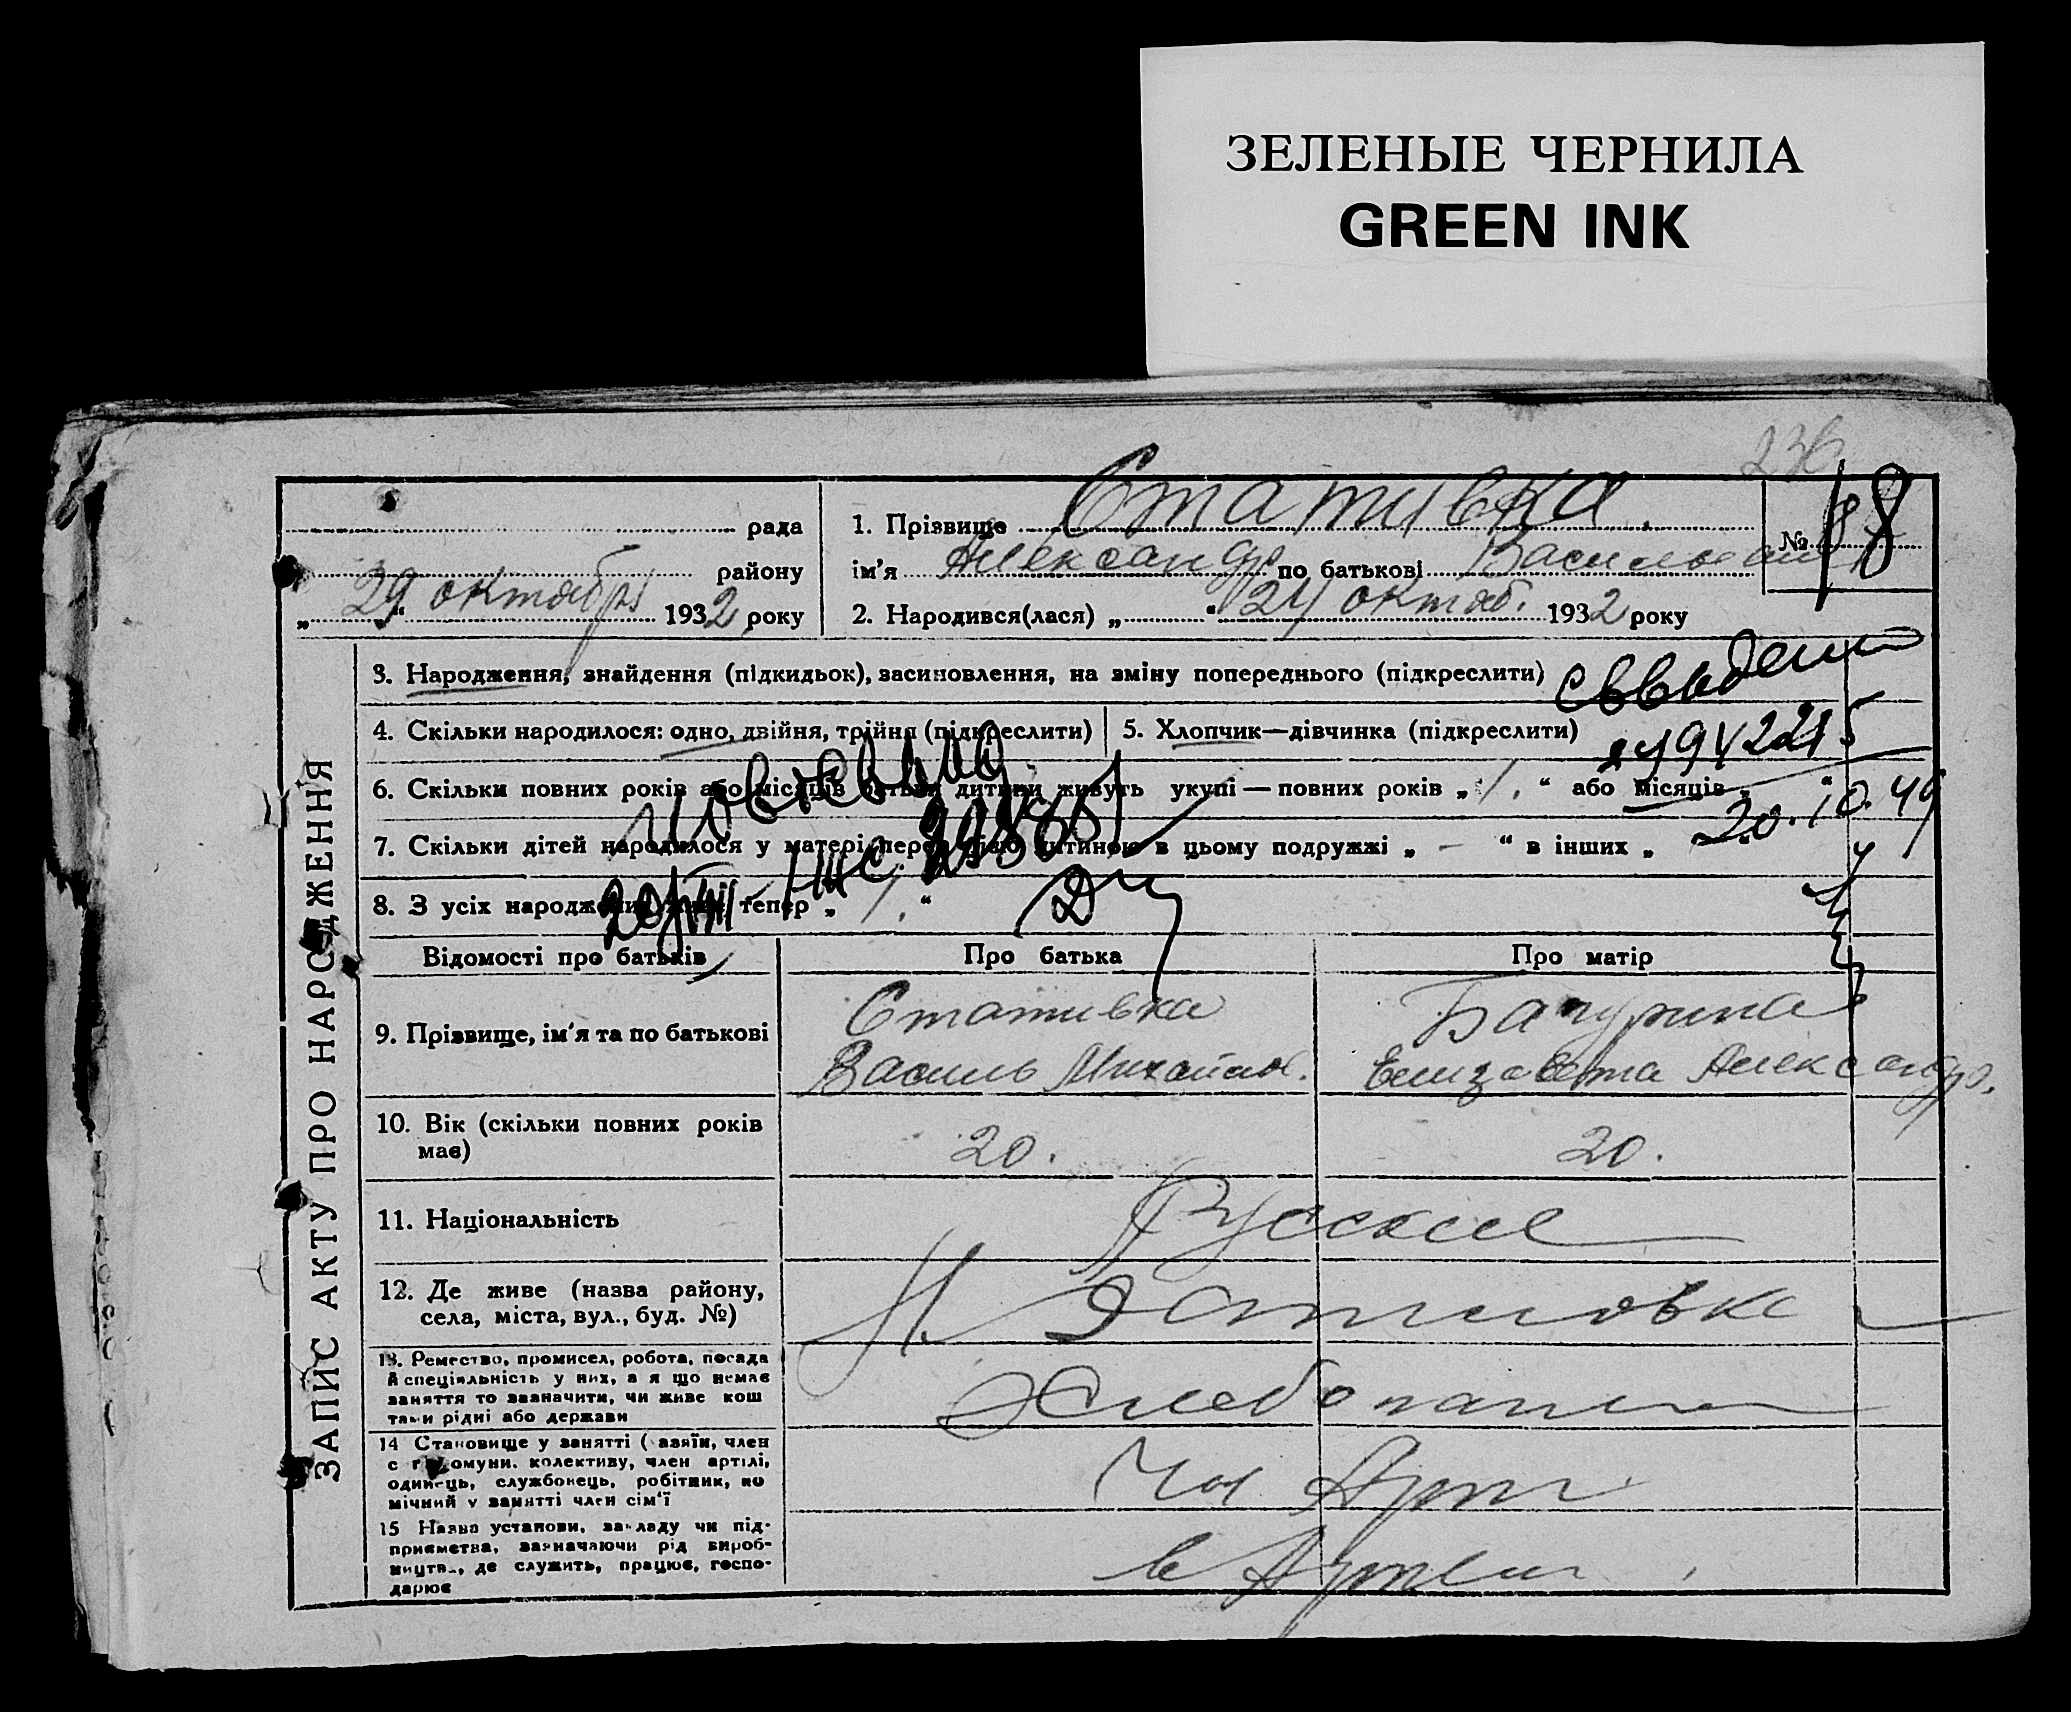 ЗЕЛЕНЫЕ ЧЕРНИЛА
GREEN INK
236
ЗАПИС АКТУ ПРО НАРОДЖЕННЯ
рада
району
„29“ октября 1932 року
1. Прізвище Стативка
ім'я Александр по батькові Васильевич
№ 188
2. Народився(лася) „ “ 24 октяб. 1932 року
3. Народження, знайдення (підкидьок), засиновлення, на зміну попереднього (підкреслити)
4. Скільки народилося: одно, двійня, трійня (підкреслити)
5. Хлопчик—дівчинка (підкреслити)
6. Скільки повних років або місяців батьки дитини живуть укупі—повних років „1.“ або місяців „ “
20.10.49
7. Скільки дітей народилося у матері перед цією дитиною в цьому подружжі „ – “ в інших „
8. З усіх народжених живі тепер „1.“
Відомості про батьків
Про батька
Про матір
9. Прізвище, ім'я та по батькові
Стативка
Василь Михайлов.
Елизавета Александро.
10. Вік (скільки повних років має)
20.
20.
11. Національність
Русские
12. Де живе (назва району, села, міста, вул., буд. №)
13. Ремество, промисел, робота, посада й спеціяльність у них, а я що немає заняття то зазначити, чи живе кош тами рідні або держави
14 Становище у занятті ( азяїн, член с г омуни. колективу, член артілі, одинець, службовець, робітник, по мічний у занятті член сім'ї
Чл Арт
15 Назва установи, закладу чи підприємства, зазначаючи рід виробництв, де служить, працює, господарює
в Артели